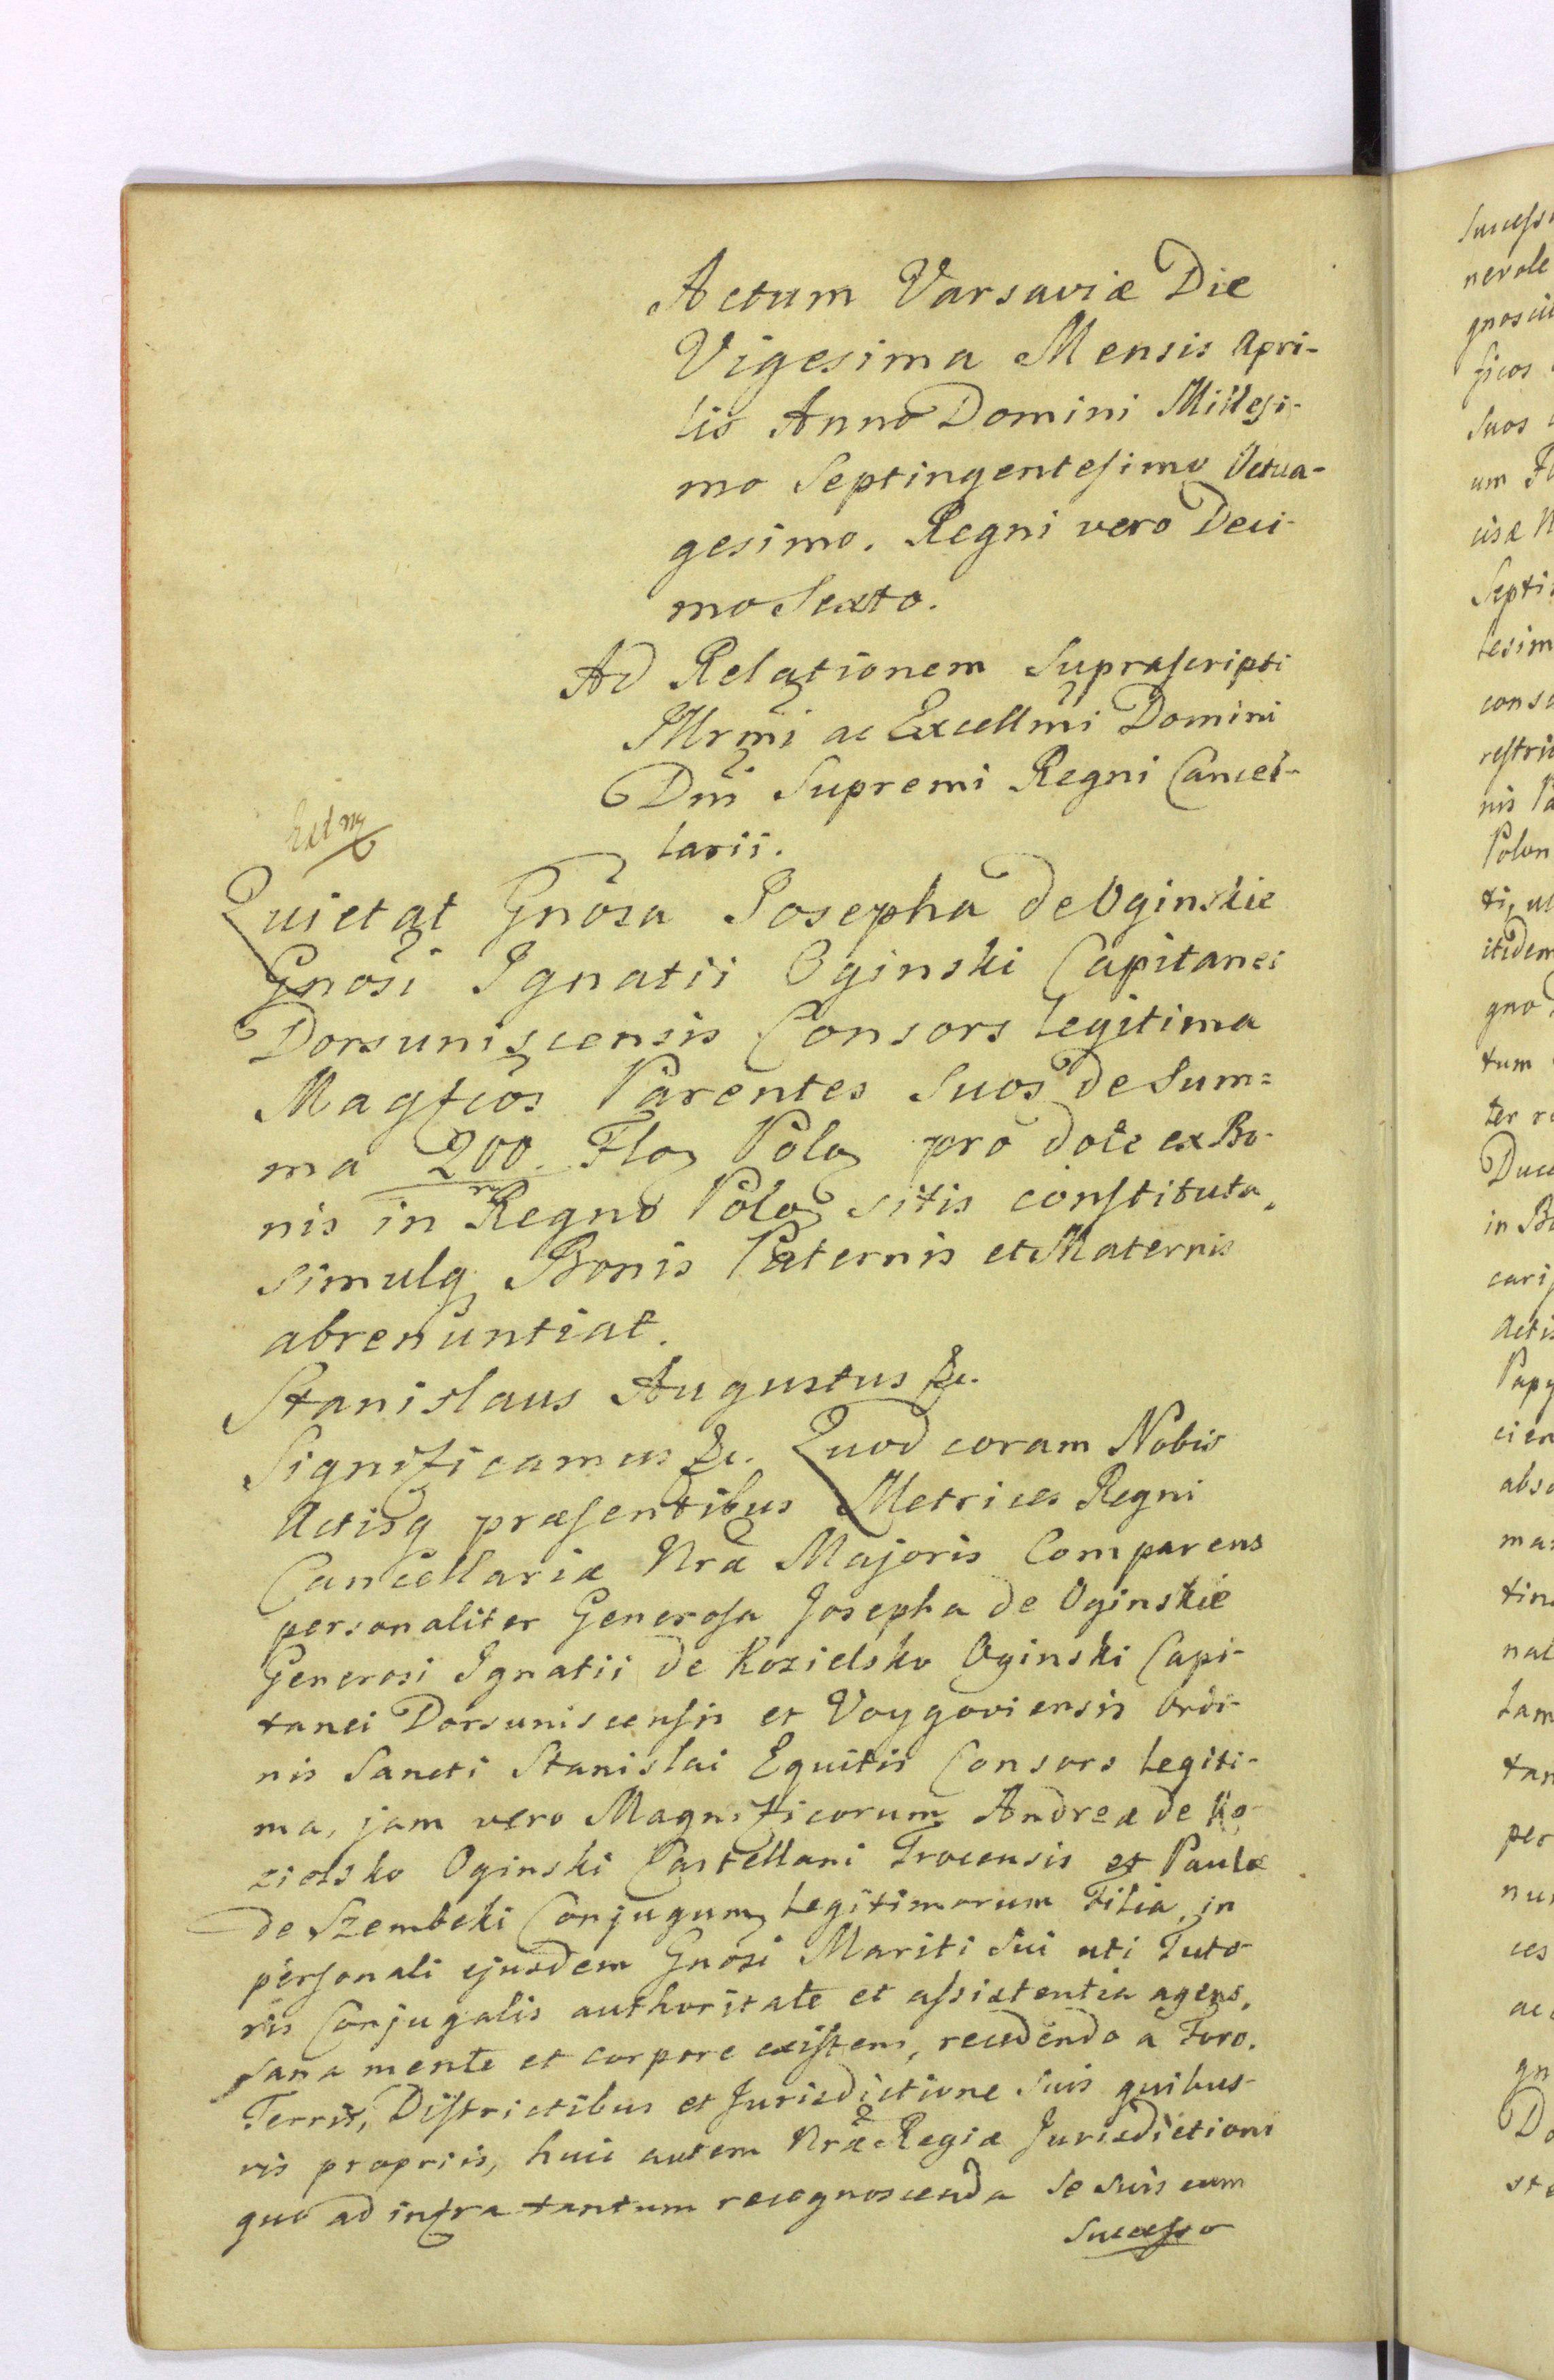 Actum Varsaviæ Die
Vigesima Mensis Apri-
lis Anno Domini Millesi-
mo Septingentesimo Octua-
gesimo. Regni vero Deci-
mo Sexto.
Ad Relationem Suprascripti
Illrmi ac Excellmi Domini
Dni Supremi Regni Cancel-
larii.
Quietat Gnosa Josepha de Oginskie
Gnosi Ignatii Oginski Capitanei
Dorsuniscensis Consors legitima
Magfcos Parentes Suos de Sum=
ma 200. Flo Polo pro dote ex Bo-
nis in Regno Polo sitis constituta,
simulq Bonis Paternis et Maternis
abrenuntiat.
Stanislaus Augustus &c.
Significamus &c. Quod coram Nobis
Actisq præsentibus Metrices Regni
Cancellariæ Nræ Majoris Comparens
personaliter Generosa Josepha de Oginskie
Generosi Ignatii de Kozielsko Oginski Capi-
tanei Dorsuniscensis et Voygoviensis Ordi-
nis Sancti Stanislai Equitis Consors legiti-
ma, jam vero Magnificorum Andreæ de Ko-
zielsko Oginski Castellani Trocensis et Paulæ
de Szembeki Conjugum legitimorum Filia, in
personali ejusdem Gnosi Mariti Sui uti Tuto-
ris Conjugalis authoritate et assistentia agens,
sana mente et corpore existens, recedendo a Foro.
Terris, Districtibus et Jurisdictione Suis quibus-
vis propriis, huic autem Nræ Regiæ Jurisdictioni
quo ad infra tantum recognoscenda se suis cum
Successo
Successo
nerale
ficos
Suos
um
cisæ
Septi
tesim
nis
Polon
itidem
gno
tum
Duc
in
Actis
Papy
per